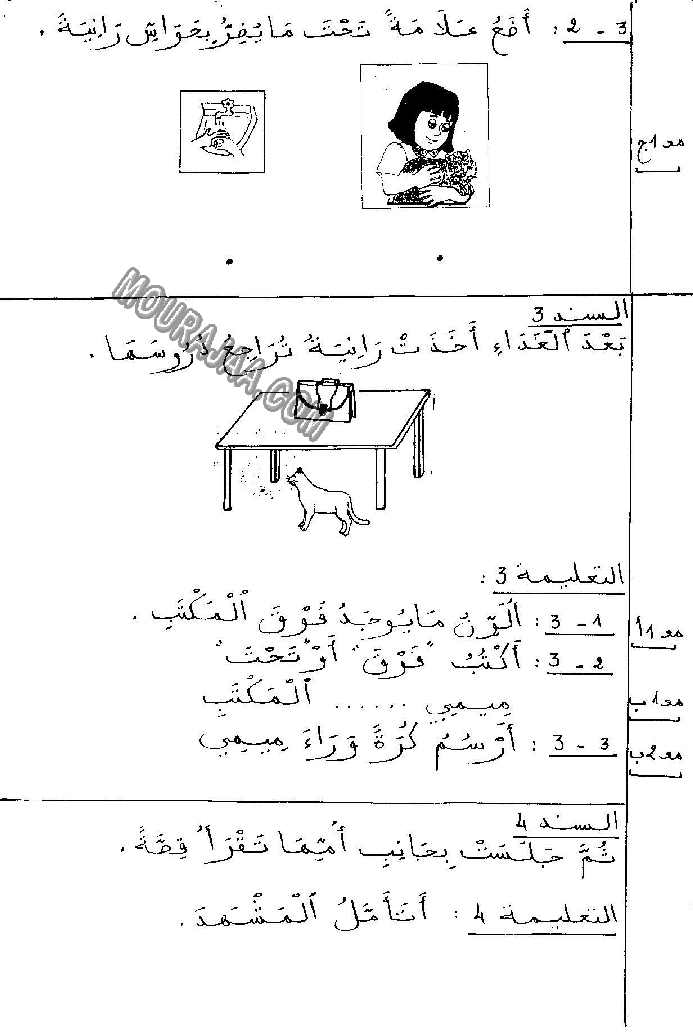 2 - 3 : أَضَعُ عَلاَمَةً تَحْتَ مَا يُضِرُّ بِحَوَاسِّ رَانِيَةَ .
مع1ج
السند 3
بَعْدَ ٱلْغَدَاءِ أَخَذَتْ رَانِيَةُ تُرَاجِعُ دُرُوسَهَا .
MOURAJAA.COM
التعليمة 3 :
3 - 1 : أُلَوِّنُ مَا يُوجَدُ فَوْقَ ٱلْمَكْتَبِ .
مع1أ
3 - 2 : أَكْتُبُ "فَوْقَ" أَوْ "تَحْتَ"
مِيمِي ...... ٱلْمَكْتَبِ
مع1ب
3 - 3 : أَرْسُمُ كُرَةً وَرَاءَ مِيمِي
مع2ب
السند 4
ثُمَّ جَلَسَتْ بِجَانِبِ أُمِّهَا تَقْرَأُ قِصَّةً .
التعليمة 4 : أَتَأَمَّلُ ٱلْمَشْهَدَ .